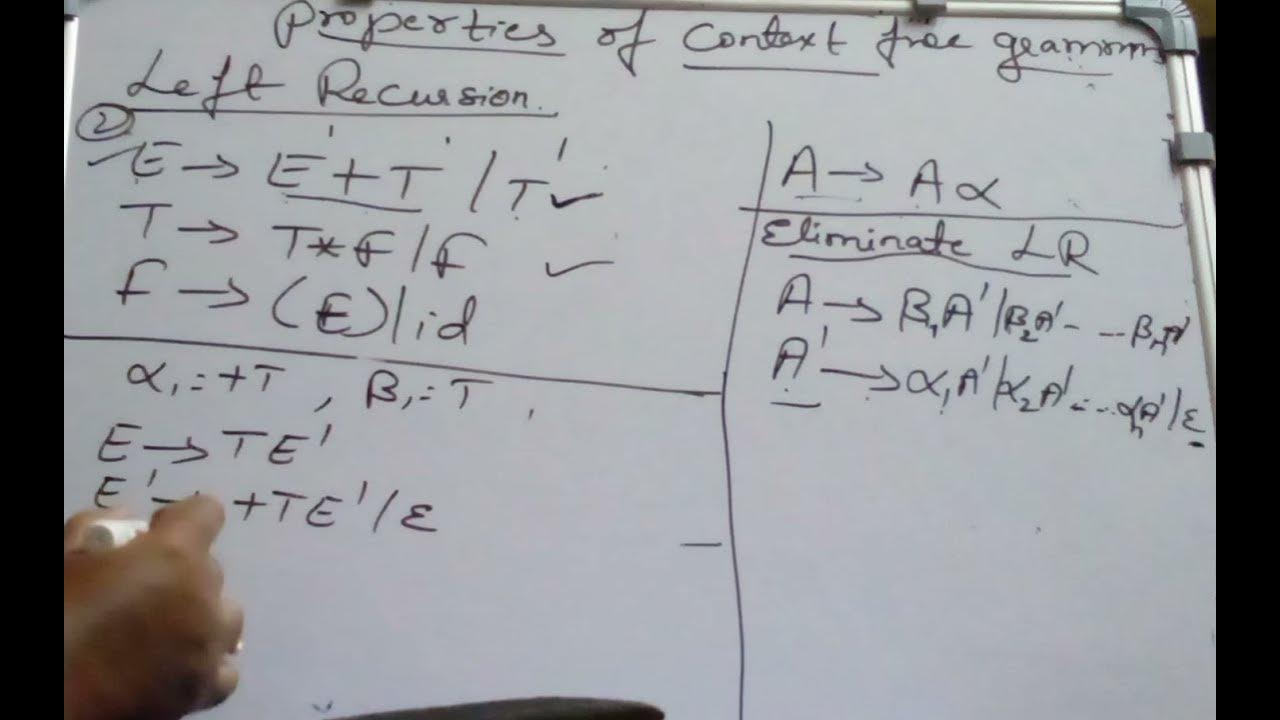 Properties of Context free grammm
Left Recursion.
②
E → E + T / T ✓
T → T * F / F ✓
F → (E) / id
α₁ = +T , β₁ = T ,
E → TE'
E' → +TE' / ε
A → Aα
Eliminate LR
A → β₁A' / β₂A' - -- βₙA'
A' → α₁A' / α₂A' -- - αₙA' / ε